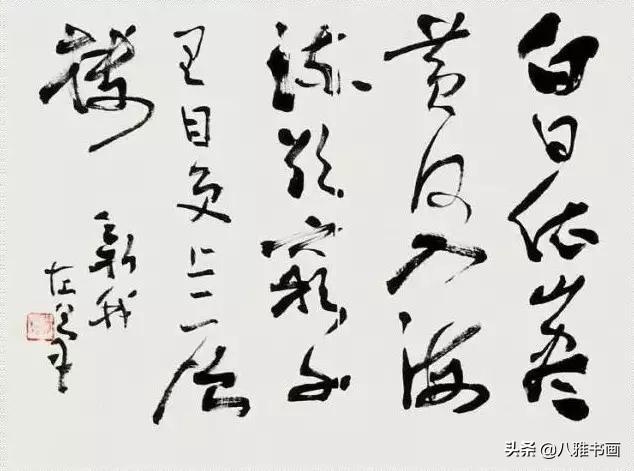 白日依山盡
黄河入海
流欲窮千
里目更上二层
楼
新我
左笔
头条 @八雅书画